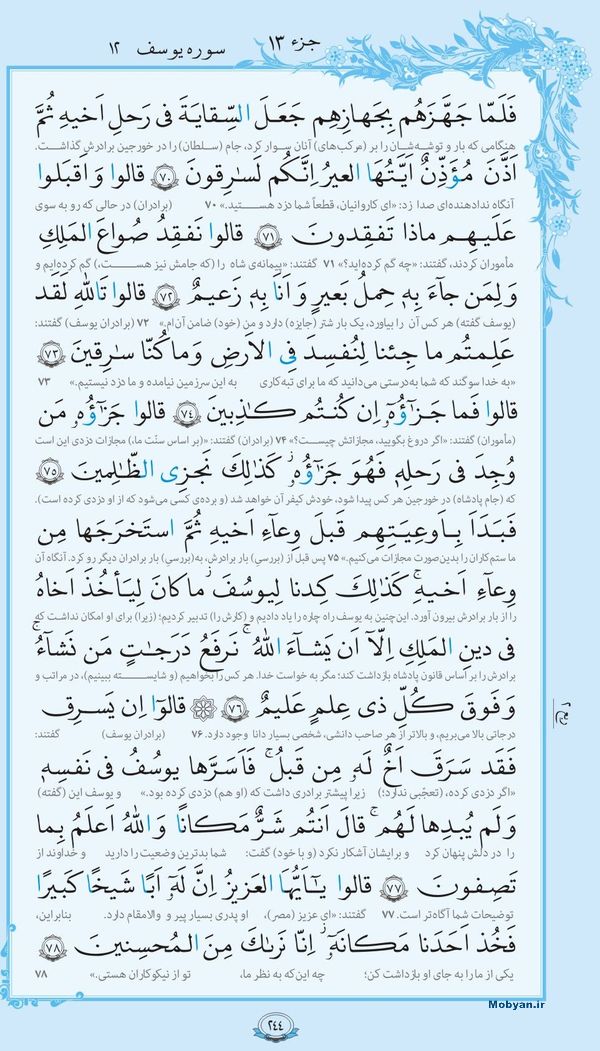 جزء ۱۳ سوره یوسف ۱۲
فَلَمّا جَهَّزَهُم بِجَهازِهِم جَعَلَ السِّقایَةَ فی رَحلِ اَخیهِ ثُمَّ
هنگامی که بار و توشه‌شان را بر (مرکب‌های) آنان سوار کرد، جام (سلطان) را در خورجین برادرش گذاشت.
اَذَّنَ مُؤَذِّنٌ اَیَّتُهَا العیرُ اِنَّکُم لَسٰرِقونَ ﴿۷۰﴾ قالوا وَ اَقبَلوا
آنگاه ندادهنده‌ای صدا زد: «ای کاروانیان، قطعاً شما دزد هستید.» ۷۰ (برادران) در حالی که رو به سوی
عَلَیهِم ماذا تَفقِدونَ ﴿۷۱﴾ قالوا نَفقِدُ صُواعَ المَلِکِ
مأموران کردند، گفتند: «چه گم کرده‌اید؟» ۷۱ گفتند: «پیمانه‌ی شاه را (که جامش نیز هست،) گم کرده‌ایم و
وَ لِمَن جآءَ بِه حِملُ بَعیرٍ وَ اَنَا بِه زَعیمٌ ﴿۷۲﴾ قالوا تَاللهِ لَقَد
(یوسف گفته) هر کس آن را بیاورد، یک بار شتر (جایزه) دارد و من (خود) ضامن آن‌ام.» ۷۲ (برادران یوسف) گفتند:
عَلِمتُم ما جِئنا لِنُفسِدَ فِی الاَرضِ وَ ما کُنّا سٰرِقینَ ﴿۷۳﴾
«به خدا سوگند که شما به‌درستی می‌دانید که ما برای تبه‌کاری به این سرزمین نیامده و ما دزد نیستیم.» ۷۳
قالوا فَما جَزٰٓؤُه اِن کُنتُم کٰذِبینَ ﴿۷۴﴾ قالوا جَزٰٓؤُه مَن
(مأموران) گفتند: «اگر دروغ بگویید، مجازاتش چیست؟» ۷۴ (برادران) گفتند: «(بر اساس سنّت ما،) مجازات دزدی این است
وُجِدَ فی رَحلِه فَهُوَ جَزٰٓؤُه کَذٰلِکَ نَجزِی الظّٰلِمینَ ﴿۷۵﴾
که (جام پادشاه) در خورجین هر کس پیدا شود، خودش کیفر آن خواهد شد (و برده‌ی کسی می‌شود که از او دزدی کرده است).
فَبَدَاَ بِاَوعِیَتِهِم قَبلَ وِعآءِ اَخیهِ ثُمَّ استَخرَجَها مِن
ما ستم‌کاران را بدین‌صورت مجازات می‌کنیم.» ۷۵ پس قبل از (بررسی) بار برادرش، به (بررسی) بار برادران دیگر رو کرد. آنگاه آن
وِعآءِ اَخیهِ کَذٰلِکَ کِدنا لِیوسُفَ ما کانَ لِیَأخُذَ اَخاهُ
را از بار برادرش بیرون آورد. این‌چنین به یوسف راه چاره را یاد دادیم و (کارش را) تدبیر کردیم؛ (زیرا) برای او امکان نداشت که
فی دینِ المَلِکِ اِلّآ اَن یَشآءَ اللهُ نَرفَعُ دَرَجٰتٍ مَن نَشآءُ
برادرش را بر اساس قانون پادشاه بازداشت کند؛ مگر به خواست خدا. هر کس را بخواهیم (و شایسته ببینیم)، در مراتب و
وَ فَوقَ کُلِّ ذی عِلمٍ عَلیمٌ ﴿۷۶﴾ قالوٓا اِن یَسرِق
درجاتی بالا می‌بریم، و بالاتر از هر صاحب دانشی، شخصی بسیار دانا وجود دارد. ۷۶ (برادران یوسف) گفتند:
فَقَد سَرَقَ اَخٌ لَه مِن قَبلُ فَاَسَرَّها یوسُفُ فی نَفسِه
«اگر دزدی کرده، (تعجّبی ندارد؛) زیرا پیشتر برادری داشت که (او هم) دزدی کرده بود.» و یوسف این (گفته)
وَ لَم یُبدِها لَهُم قالَ اَنتُم شَرٌّ مَکانًا وَ اللهُ اَعلَمُ بِما
را در دلش پنهان کرد و برایشان آشکار نکرد (و با خود) گفت: شما بدترین وضعیت را دارید و خداوند از
تَصِفونَ ﴿۷۷﴾ قالوا یٰٓاَیُّهَا العَزیزُ اِنَّ لَهٓ اَبًا شَیخًا کَبیرًا
توضیحات شما آگاه‌تر است. ۷۷ گفتند: «ای عزیز (مصر)، او پدری بسیار پیر و والامقام دارد. بنابراین،
فَخُذ اَحَدَنا مَکانَهٓ اِنّا نَرٰىکَ مِنَ المُحسِنینَ ﴿۷۸﴾
یکی از ما را به جای او بازداشت کن؛ چه این‌که به نظر ما، تو از نیکوکاران هستی.» ۷۸
۲۴۴
Mobyan.ir